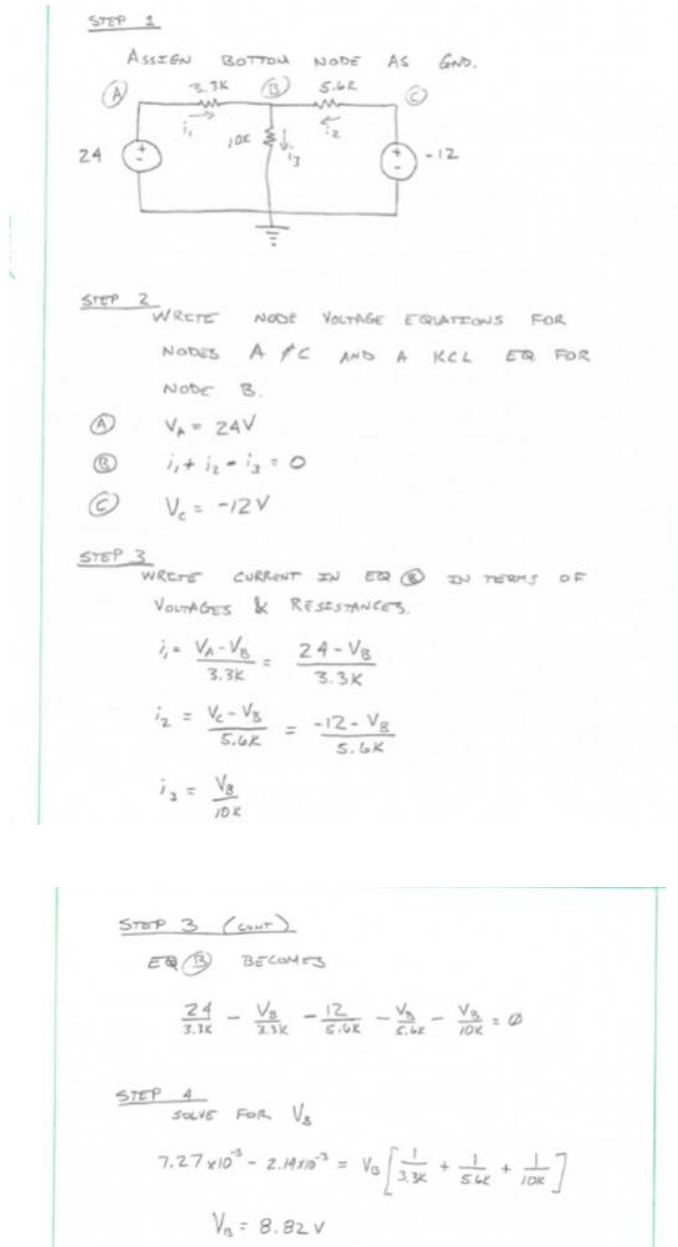 STEP 1
ASSIGN BOTTOM NODE AS GND.
A 3.3K B 5.6K C
i₁ 10K i₃ i₂
24 + - + - -12
STEP 2
WRITE NODE VOLTAGE EQUATIONS FOR
NODES A & C AND A KCL EQ FOR
NODE B.
A V_A = 24V
B i₁ + i₂ - i₃ = 0
C V_C = -12V
STEP 3
WRITE CURRENT IN EQ B IN TERMS OF
VOLTAGES & RESISTANCES.
i₁ = (V_A - V_B)/3.3K = (24 - V_B)/3.3K
i₂ = (V_C - V_B)/5.6K = (-12 - V_B)/5.6K
i₃ = V_B/10K
STEP 3 (CONT)
EQ B BECOMES
24/3.3K - V_B/3.3K - 12/5.6K - V_B/5.6K - V_B/10K = Ø
STEP 4
SOLVE FOR V_B
7.27 x10⁻³ - 2.14x10⁻³ = V_B [1/3.3K + 1/5.6K + 1/10K]
V_B = 8.82 V